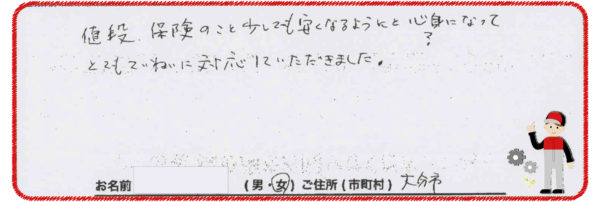 値段、保険のこと少しでも安くなるようにと心身になって
?
とてもていねいに対応していただきました。
お名前 (男・女) ご住所(市町村) 大分市